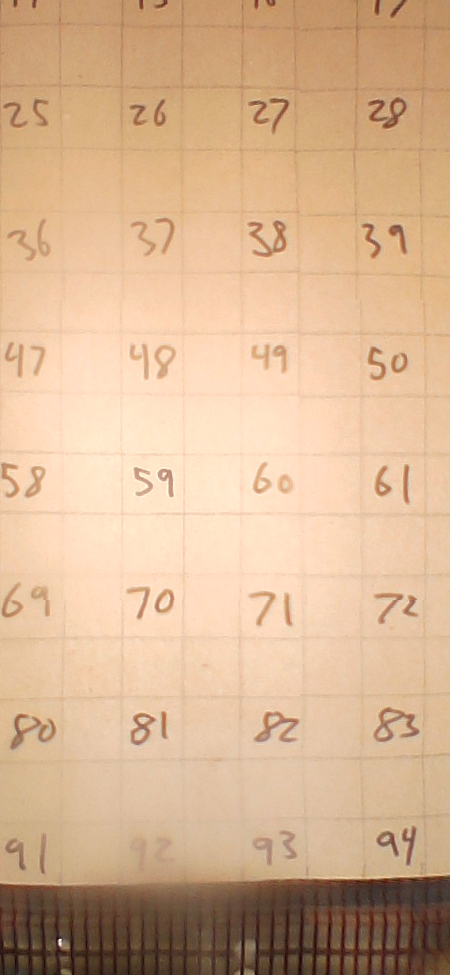 25 26 27 28
36 37 38 39
47 48 49 50
58 59 60 61
69 70 71 72
80 81 82 83
91 92 93 94